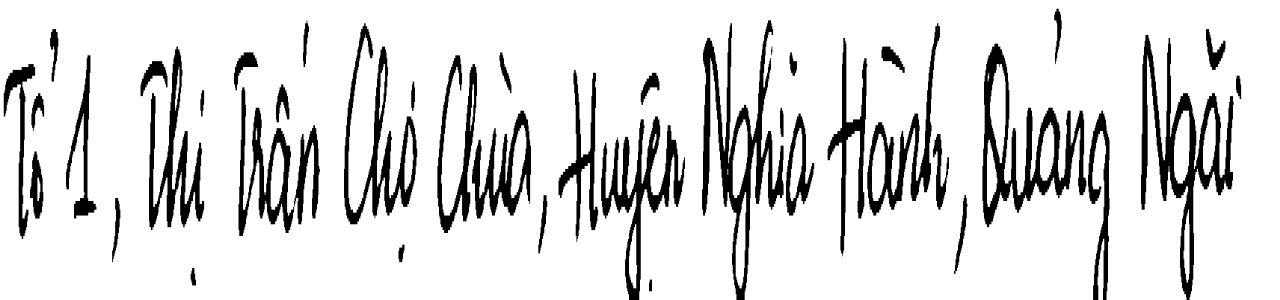 Tổ 1, Thị Trấn Chợ Chùa, Huyện Nghĩa Hành, Quảng Ngãi